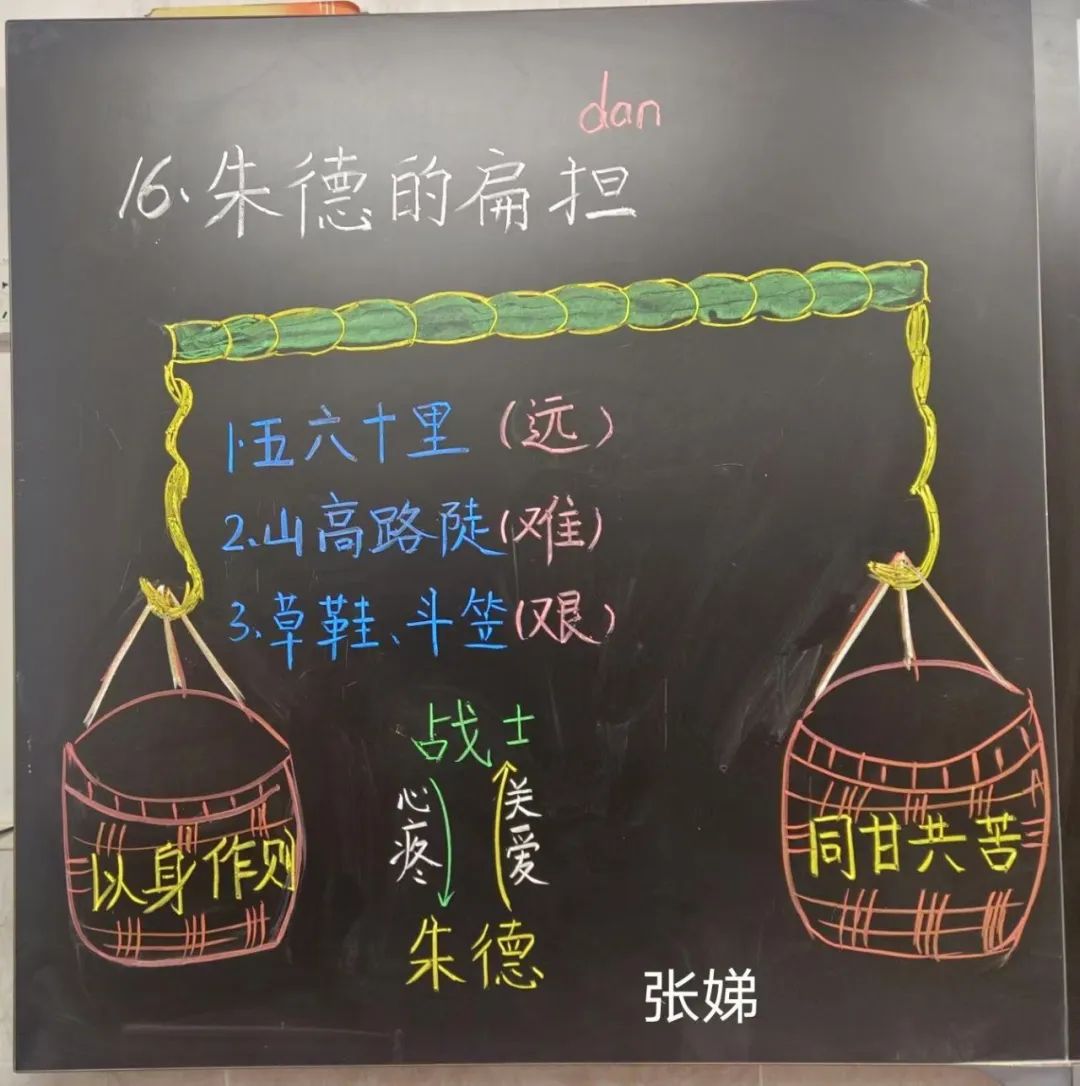 dan
16、朱德的扁担
1.五六十里(远)
2.山高路陡(难)
3.草鞋、斗笠(艰)
战士
心疼
关爱
朱德
以身作则
同甘共苦
张娣